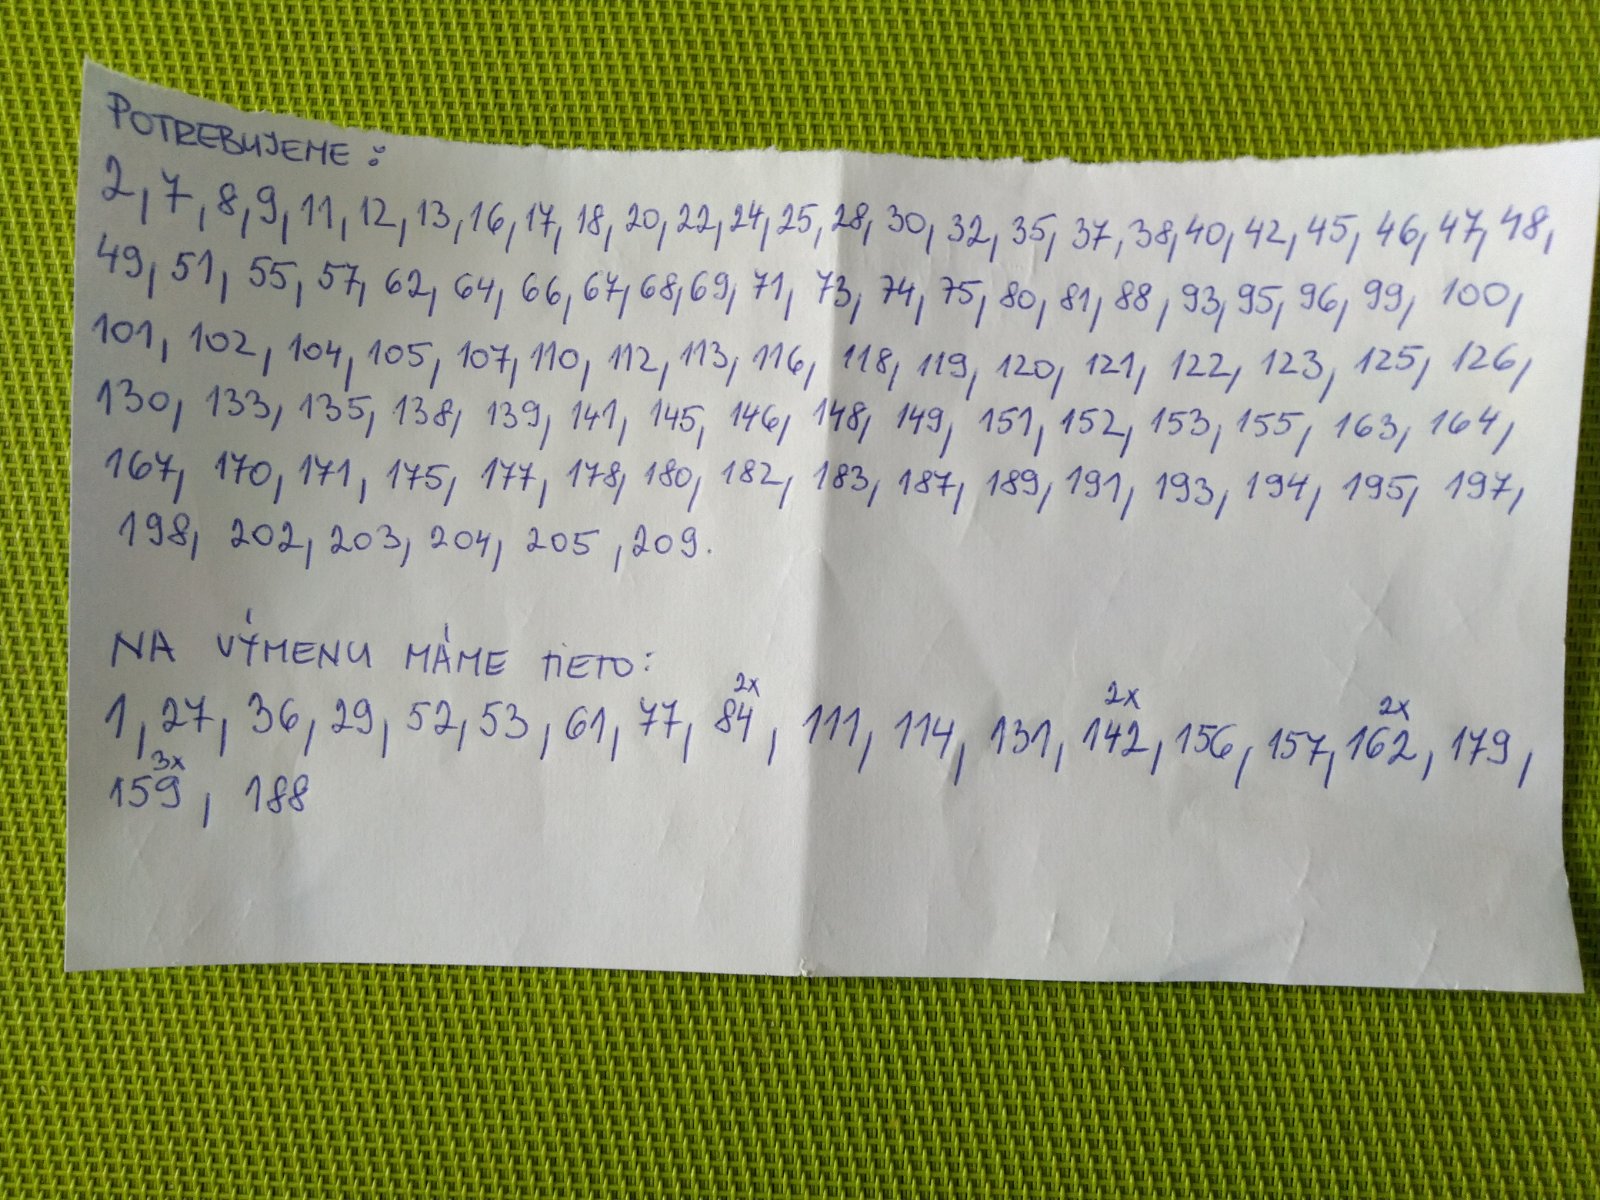 POTREBUJEME:
2, 7, 8, 9, 11, 12, 13, 16, 17, 18, 20, 22, 24, 25, 28, 30, 32, 35, 37, 38, 40, 42, 45, 46, 47, 48,
49, 51, 55, 57, 62, 64, 66, 67, 68, 69, 71, 73, 74, 75, 80, 81, 88, 93, 95, 96, 99, 100,
101, 102, 104, 105, 107, 110, 112, 113, 116, 118, 119, 120, 121, 122, 123, 125, 126,
130, 133, 135, 138, 139, 141, 145, 146, 148, 149, 151, 152, 153, 155, 163, 164,
167, 170, 171, 175, 177, 178, 180, 182, 183, 187, 189, 191, 193, 194, 195, 197,
198, 202, 203, 204, 205, 209.
NA VÝMENU MÁME TIETO:
2x 2x 2x
1, 27, 36, 29, 52, 53, 61, 77, 84, 111, 114, 131, 142, 156, 157, 162, 179,
3x
159, 188